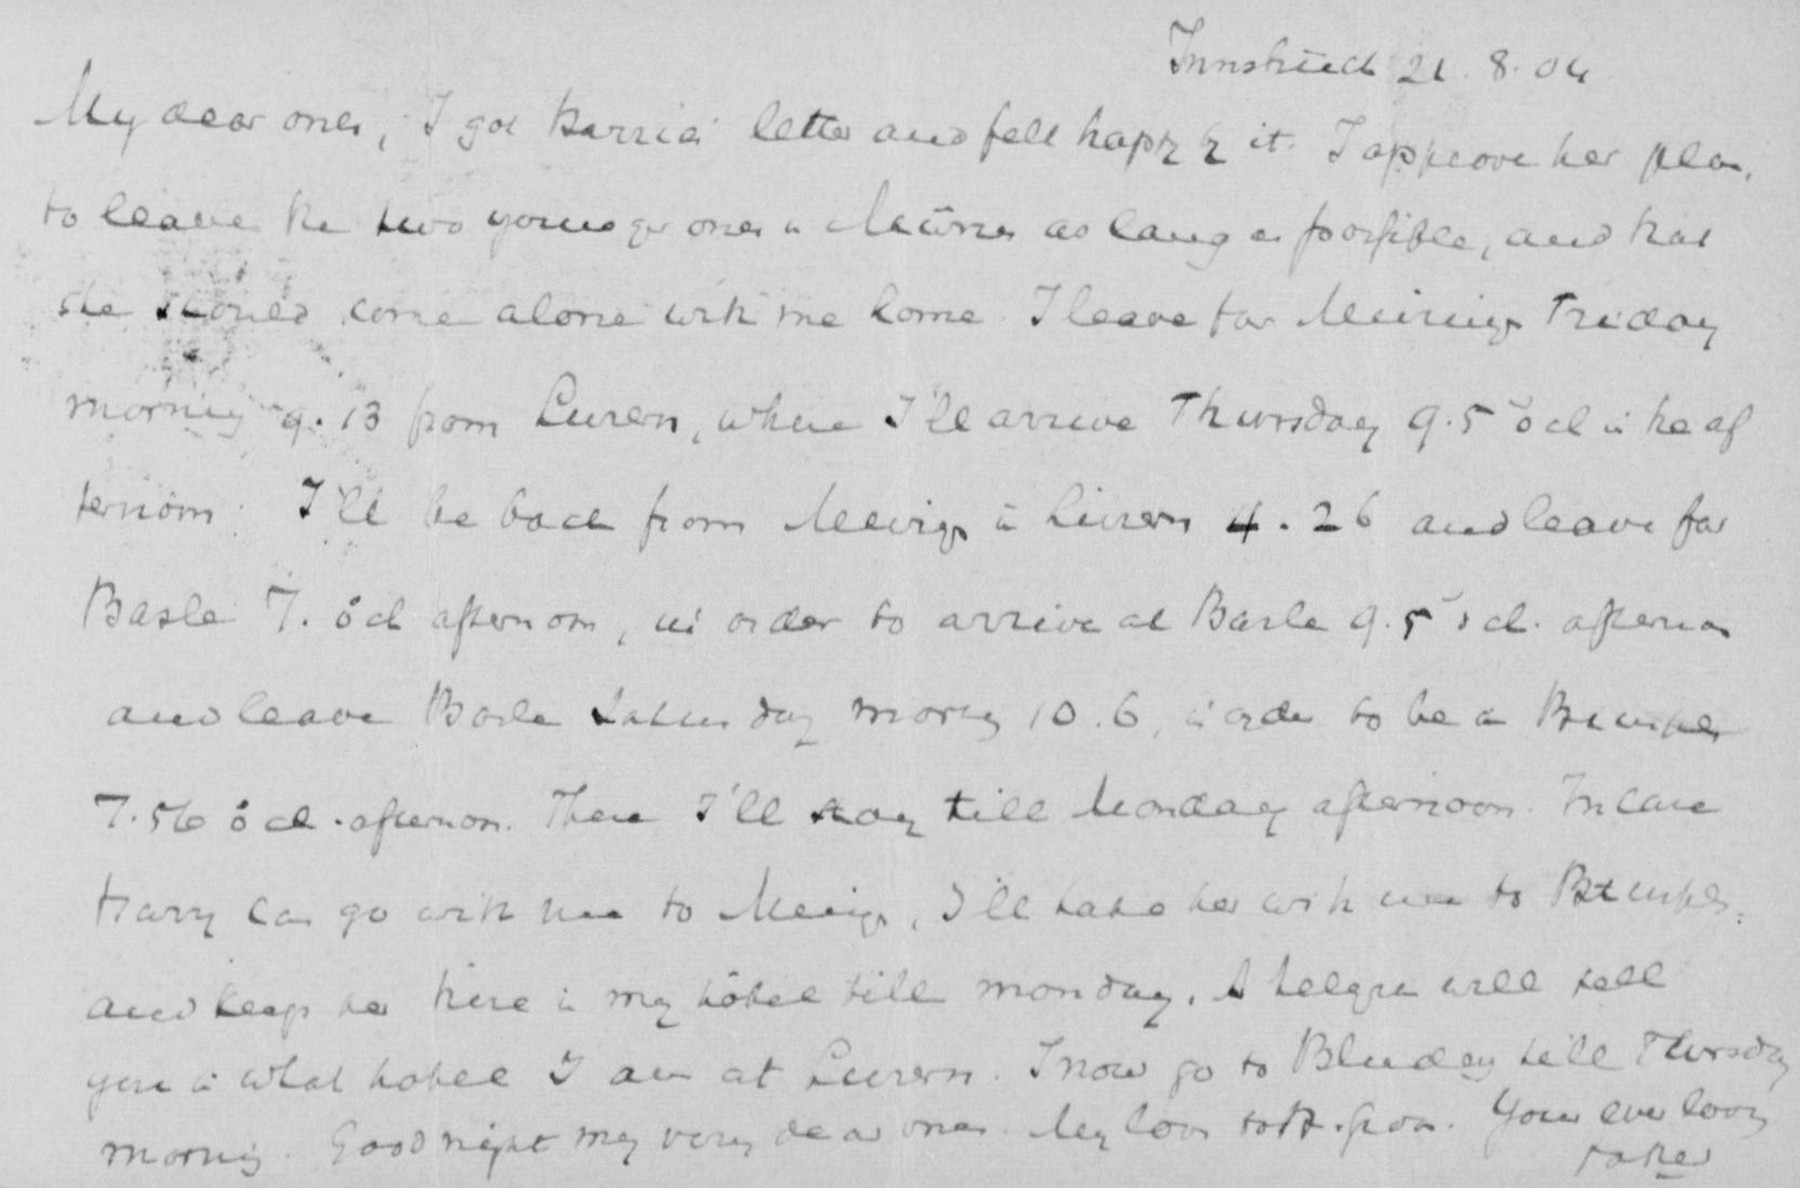 Innsbruck 21.8.04
My dear ones, I got Harrie's letter and felt happy by it. I approve her plan,
to leave the two younger ones in Mürren as long as possible, and that
she should come alone with me home. I leave for Meiringen Friday
morning 9.13 from Luzern, where I'll arrive Thursday 9.5 o'cl in the af
ternoon. I'll be back from Meiringen in Luzern 4.26 and leave for
Basle 7. o'cl afternoon, in order to arrive at Basle 9.5 o'cl. afternoon
and leave Basle Saturday morning 10.6, in order to be in
7.56 o'cl. afternoon. There I'll stay till Monday afternoon. In case
Harry can go with me to Meiringen, I'll take her with me to
and keep her there in my hôtel till monday. A telegram will tell
you in what hotel I am at Luzern. I now go to Bludenz till Thursday
morning. Good night my very dear ones. My love to Your ever loving
father